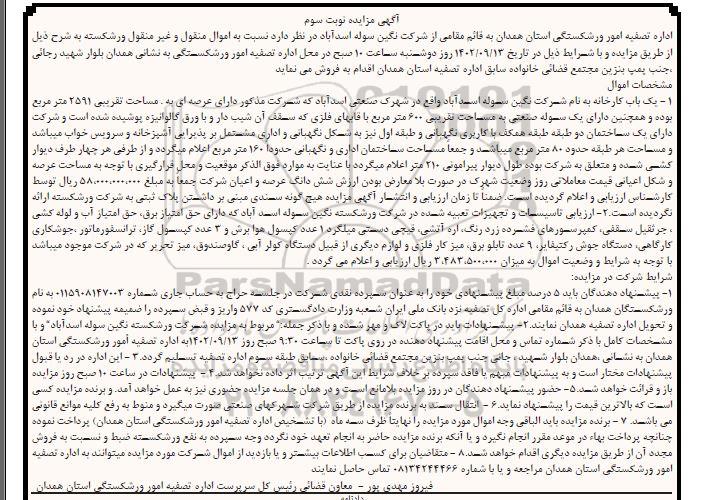 آگهی مزایده نوبت سوم
اداره تصفیه امور ورشکستگی استان همدان به قائم مقامی از شرکت نگین سوله اسدآباد در نظر دارد نسبت به اموال منقول و غیر منقول ورشکسته به شرح ذیل
از طریق مزایده و با شرایط ذیل در تاریخ ۱۴۰۲/۰۹/۱۳ روز دوشنبه ساعت ۱۰ صبح در محل اداره تصفیه امور ورشکستگی به نشانی همدان بلوار شهید رجائی
،جنب پمپ بنزین مجتمع قضائی خانواده سابق اداره تصفیه استان همدان اقدام به فروش می نماید
مشخصات اموال
۱ – یک باب کارخانه به نام شرکت نگین سوله اسدآباد واقع در شهرک صنعتی اسدآباد که شرکت مذکور دارای عرصه ای به . مساحت تقریبی ۲۵۹۱ متر مربع
بوده و همچنین دارای یک سوله صنعتی به مساحت تقریبی ۶۰۰ متر مربع با قابهای فلزی که سقف آن شیب دار و با ورق گالوانیزه پوشیده شده است و شرکت
دارای یک ساختمان دو طبقه طبقه همکف با کاربری نگهبانی و طبقه اول نیز به شکل نگهبانی و اداری مشتمل بر پذیرایی آشپزخانه و سرویس خواب میباشد
و مساحت هر طبقه حدود ۸۰ متر مربع میباشد و جمعاً مساحت ساختمان اداری و نگهبانی حدوداً ۱۶۰ متر مربع اعلام میگردد و از طرفی هر چهار طرف دیوار
کشی شده و متعلق به شرکت بوده طول دیوار پیرامونی ۲۱۰ متر اعلام میگردد با عنایت به موارد فوق الذکر موقعیت و محل قرارگیری با توجه به مساحت عرصه
و شکل اعیانی قیمت معاملاتی روز وضعیت شهرک در صورت بلا معارض بودن ارزش شش دانگ عرصه و اعیان شرکت جمعاً به مبلغ ۵۸،۰۰۰،۰۰۰،۰۰۰ ریال توسط
کارشناس ارزیابی و اعلام گردیده است. ضمناً تا زمان ارزیابی و انتشار آگهی مزایده هیچ گونه سندی مبنی بر داشتن پلاک ثبتی به شرکت ورشکسته ارائه
نگردیده است.۲- ارزیابی تاسیسات و تجهیزات تعبیه شده در شرکت ورشکسته نگین سوله اسد آباد که دارای حق امتیاز برق، حق امتیاز آب و لوله کشی
، جرثقیل سقفی، کمپرسورهای فشرده زرد رنگ، اره آتشی، قیچی دستی میلگرد ۱ عدد کپسول هوا برش و ۳ عدد کپسول گاز، ترانسفورماتور ،جوشکاری
کارگاهی، دستگاه جوش رکتیفایر، ۹ عدد تابلو برق، میز کار فلزی و لوازم دیگری از قبیل دستگاه کولر آبی ، گاوصندوق، میز تحریر که در شرکت موجود میباشد
با توجه به شرایط و وضعیت اموال به میزان ۳.۴۸۳،۵۰۰،۰۰۰ ریال ارزیابی و اعلام می گردد .
شرایط شرکت در مزایده:
۱- پیشنهاد دهندگان باید ۵ درصد مبلغ پیشنهادی خود را به عنوان سپرده نقدی شرکت در جلسه حراج به حساب جاری شماره ۰۱۱۵۹۰۸۱۴۷۰۰۳ به نام
ورشکستگان همدان به قائم مقامی اداره کل تصفیه نزد بانک ملی ایران شعبه وزارت دادگستری کد ۵۷۷ واریز و قبض سپرده را ضمیمه پیشنهاد خود نموده
و تحویل اداره تصفیه همدان نمایند.۲- پیشنهادات باید در پاکت لاک و مهر شده و با ذکر جمله:" مربوط به مزایده شرکت ورشکسته نگین سوله اسدآباد" و با
مشخصات کامل با ذکر شماره تماس و محل اقامت پیشنهاد دهنده در روی پاکت تا ساعت ۹:۳۰ صبح روز ۱۴۰۲/۰۹/۱۳به اداره تصفیه امور ورشکستگی استان
همدان به نشانی ،همدان بلوار شهید، رجائی جنب پمپ بنزین مجتمع قضائی خانواده ،سابق طبقه سوم اداره تصفیه تسلیم گردد.۳ - این اداره در رد یا قبول
پیشنهادات مختار است و به پیشنهادات مبهم یا فاقد سپرده بر خلاف شرایط این آگهی ترتیب اثر داده نخواهد شد.۴ - پیشنهادات در ساعت ۱۰ صبح روز مزایده
باز و قرائت خواهد شد.۵- حضور پیشنهاد دهندگان در روز مزایده بلامانع است و در همان جلسه مزایده حضوری نیز به عمل خواهد آمد. و برنده مزایده کسی
است که بالاترین قیمت را پیشنهاد نماید.۶ - انتقال سند به برنده مزایده از طریق شرکت شهرکهای صنعتی صورت میگیرد و منوط به رفع کلیه موانع قانونی
می باشد. ۷ - برنده مزایده باید الباقی وجه اموال مورد مزایده را نهایتا ظرف سه ماه (با تشخیص اداره تصفیه امور ورشکستگی استان همدان) پرداخت نموده
چنانچه پرداخت بهاء در موعد مقرر انجام نگیرد و یا آنکه برنده مزایده حاضر به انجام تعهد خود نگردد وجه سپرده به نفع ورشکسته ضبط و نسبت به فروش
مجدد آن از طریق مزایده دیگری اقدام خواهد شد.۸ - متقاضیان برای کسب اطلاعات بیشتر و یا بازدید از اموال شرکت مورد مزایده میتوانند به اداره تصفیه
امور ورشکستگی استان همدان مراجعه و یا با شماره ۰۸۱۳۴۲۴۴۴۶۶ تماس حاصل نمایند
فیروز مهدی پور - معاون قضائی رئیس کل سرپرست اداره تصفیه امور ورشکستگی استان همدان
ParsNamadData